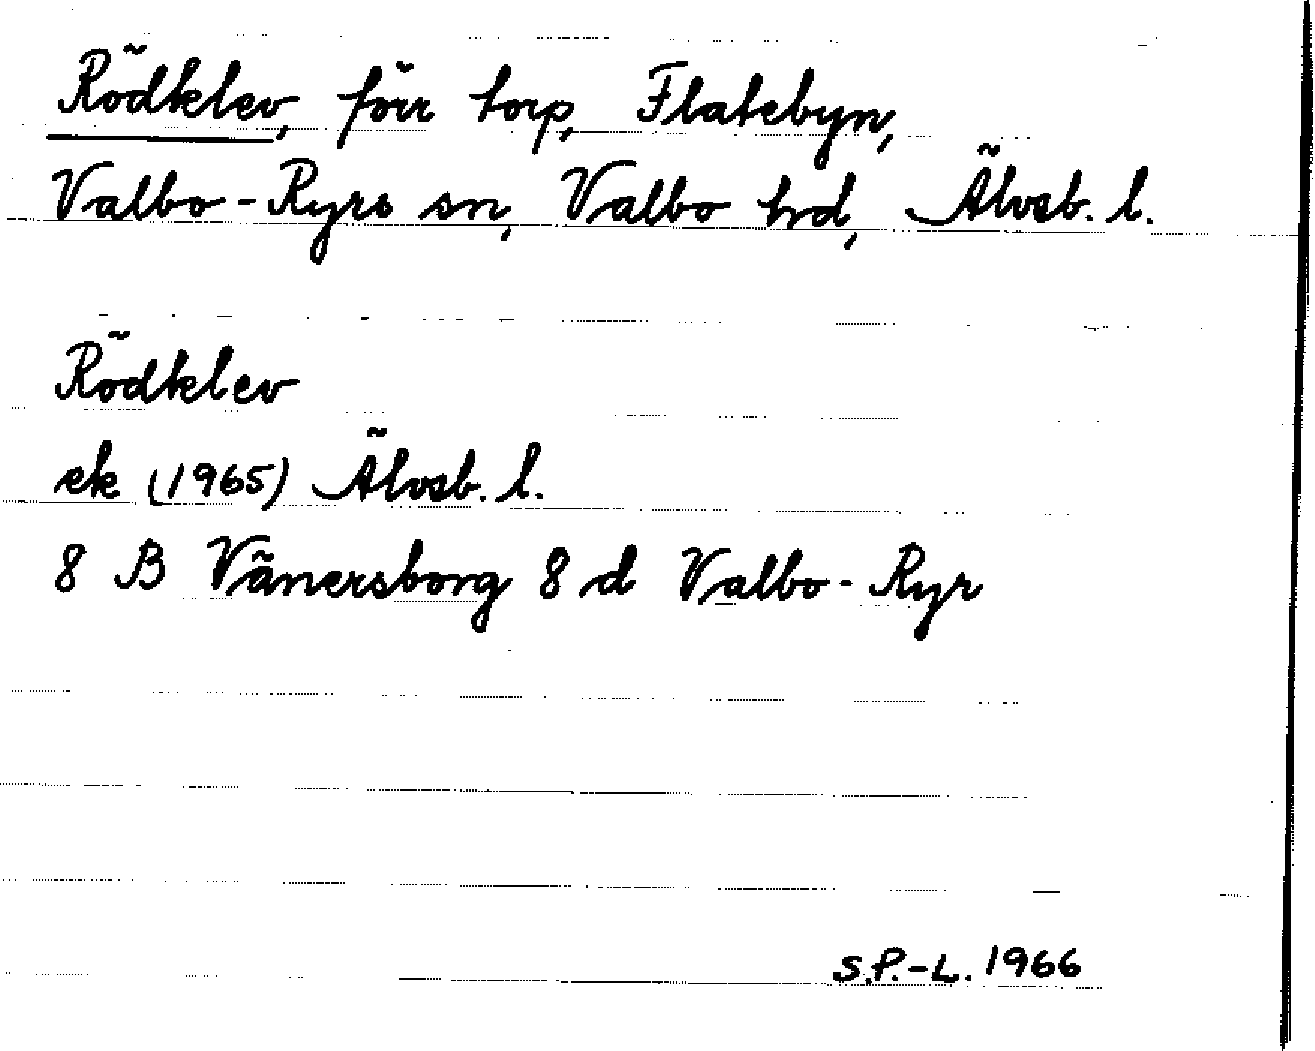 Rödklev, förr torp, Flatebyn,
Valbo-Ryrs sn, Valbo hd, Älvsb. l.
Rödklev
ek (1965) Älvsb. l.
8 B Vänersborg 8 d Valbo-Ryr
S.P.-L. 1966